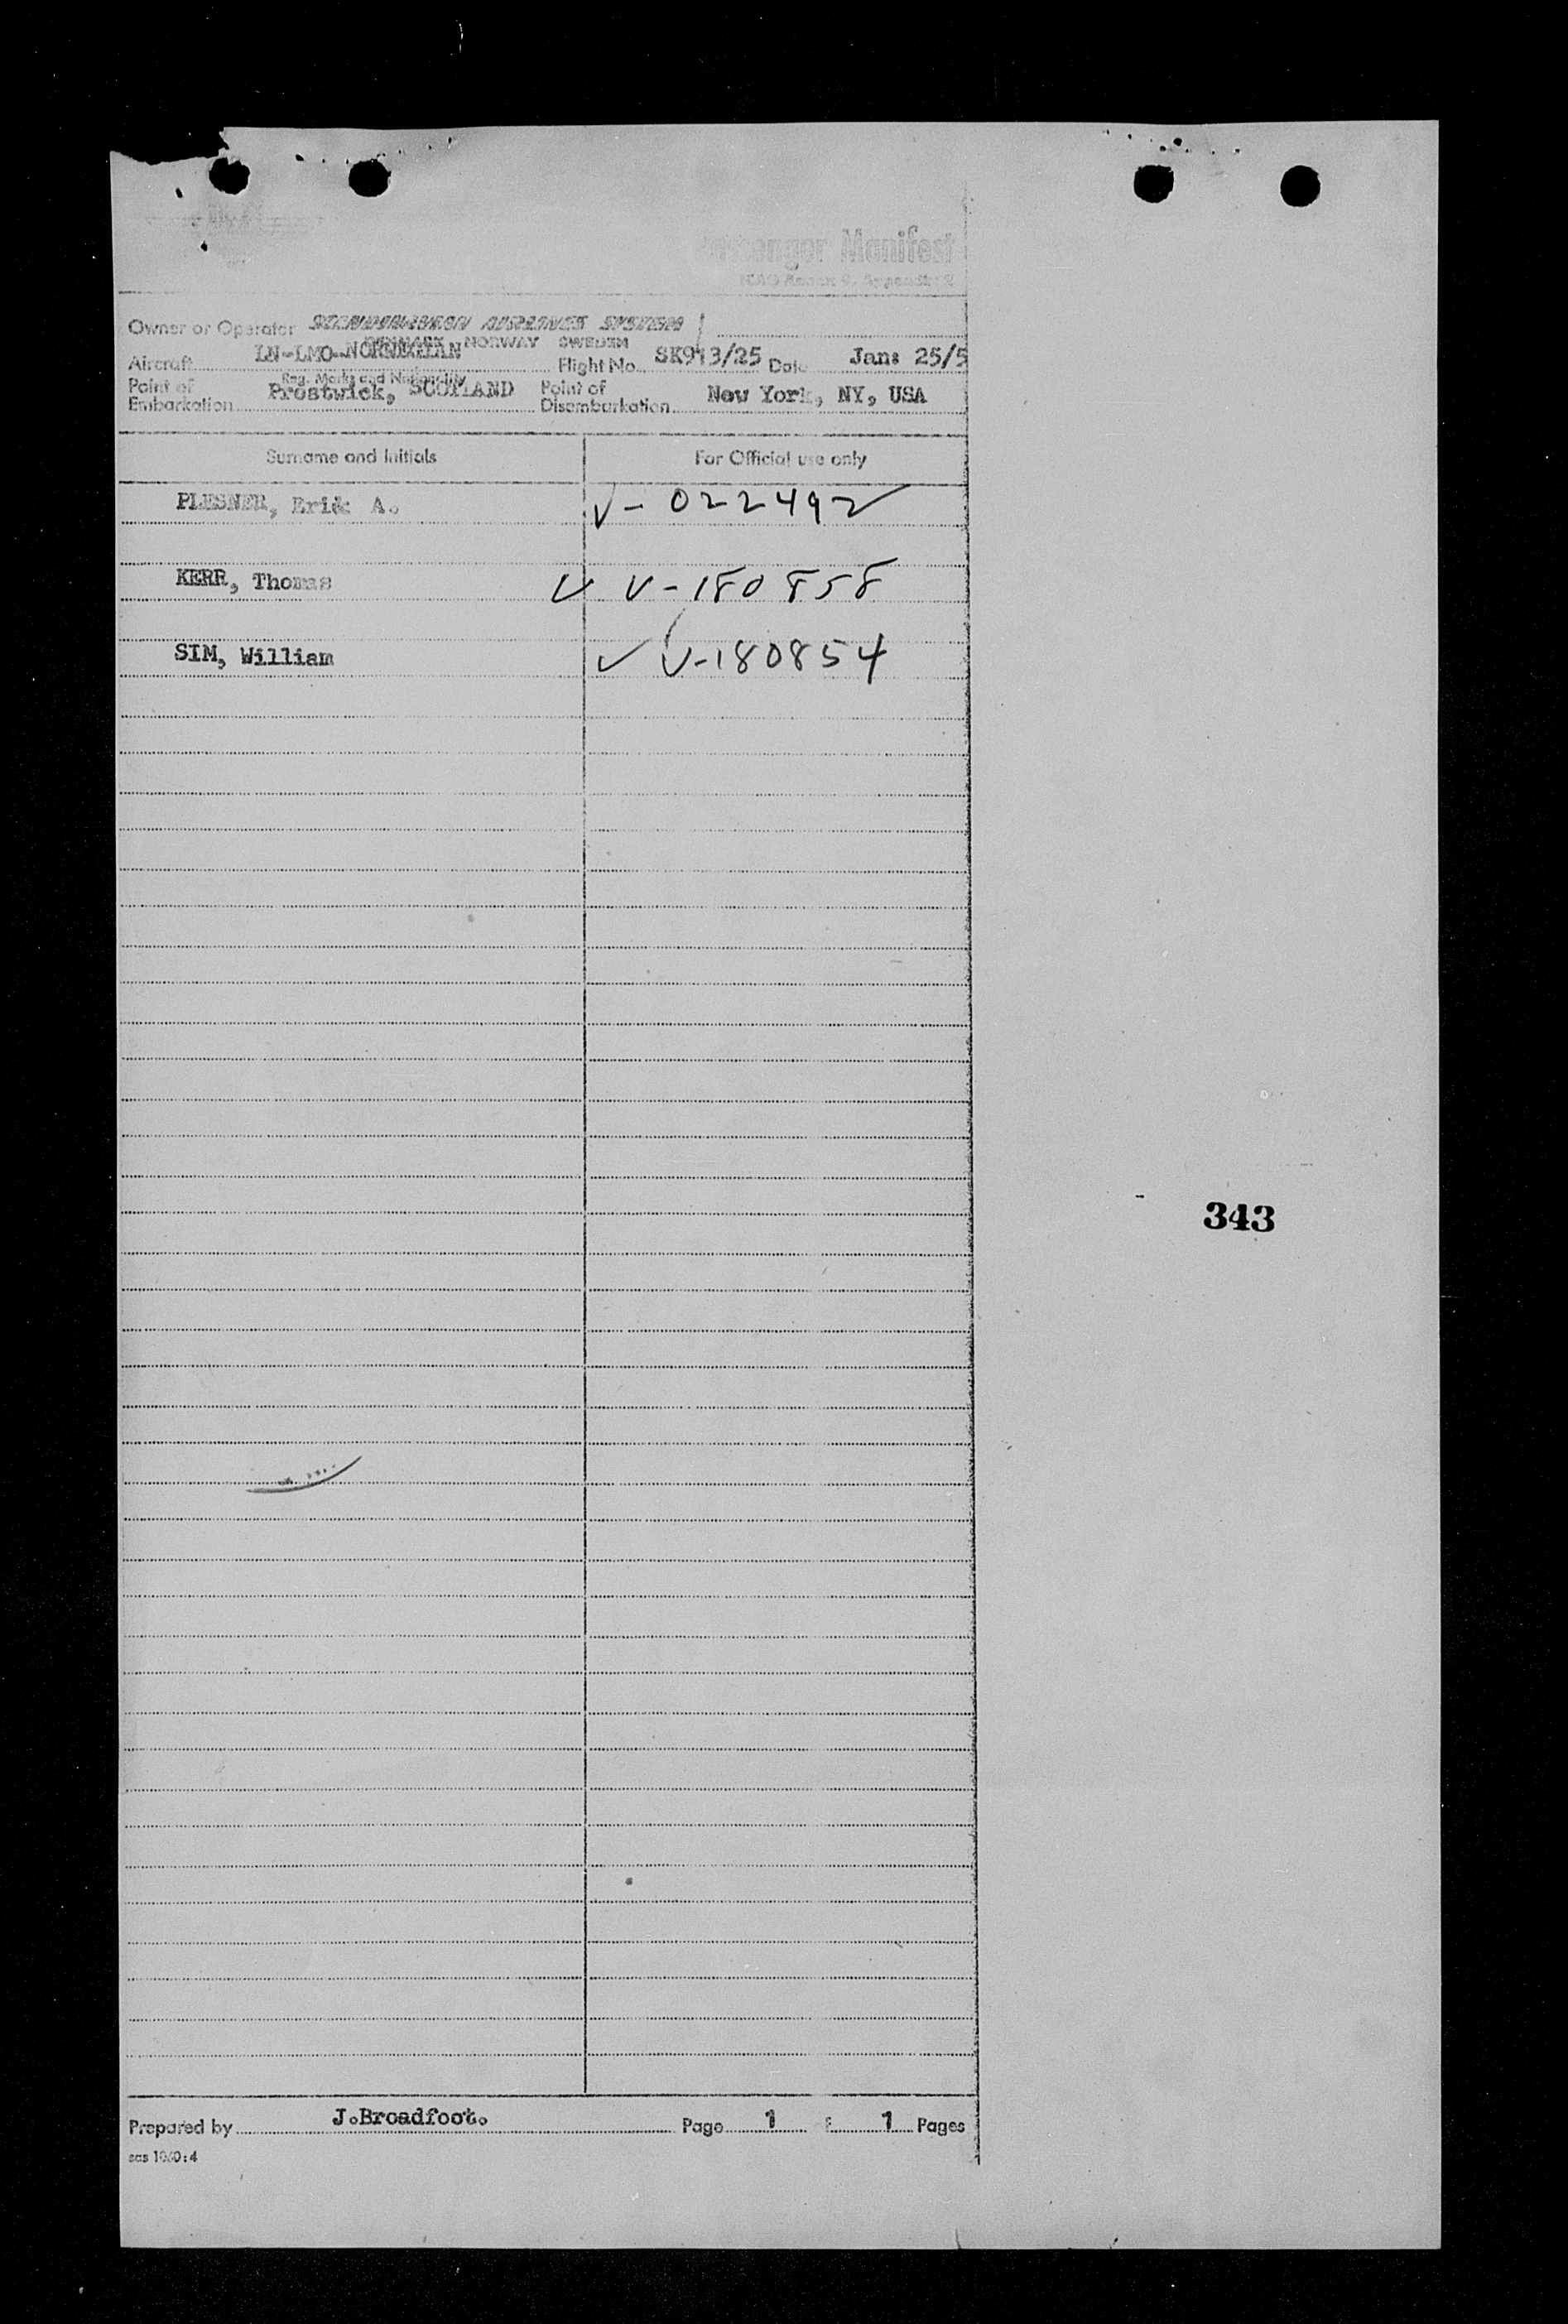 Passenger Manifest
ICAO Annex 9, Appendix 2
Owner or Operator SCANDINAVIAN AIRLINES SYSTEM
DENMARK NORWAY SWEDEN
Aircraft LN-LMO-NORWEGIAN Flight No. SK913/25 Date Jan: 25/5
Reg. Marks and Nationality
Point of Embarkation Prestwick, SCOTLAND Point of Disembarkation New York, NY, USA
Surname and Initials For Official use only
PLESNER, Erik A. V- 022492
KERR, Thomas V V-180858
SIM, William ✓ V-180854
343
Prepared by J.Broadfoot. Page 1 1 Pages
sas 1060:4